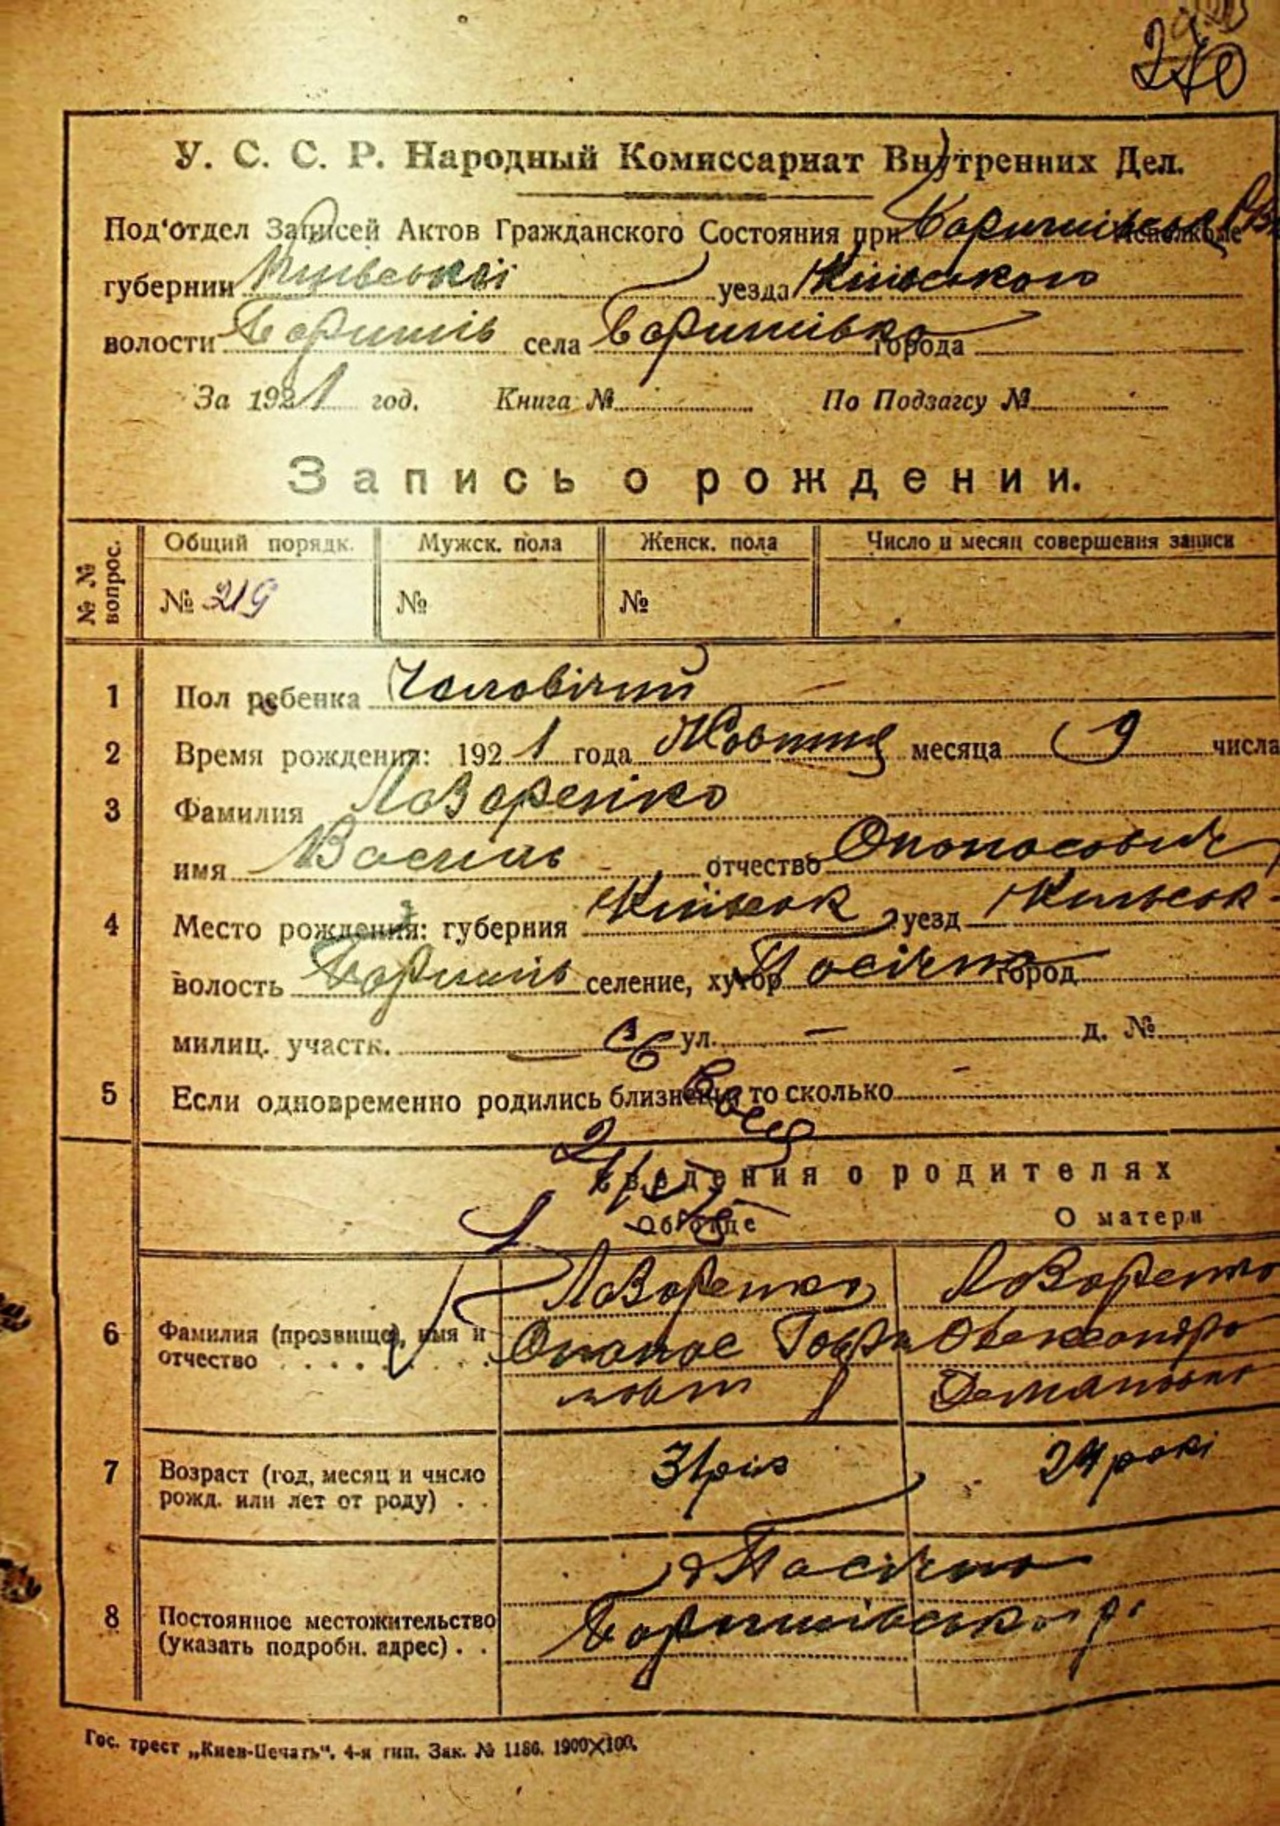 270
У. С. С. Р. Народный Комиссариат Внутренних Дел.
Под'отдел Записей Актов Гражданского Состояния при
губернии Київської уезда Київського
волости Баришів села Баришівка города
За 1921 год. Книга № По Подзагсу №
Запись о рождении.
№ № вопрос. Общий порядк. Мужск. пола Женск. пола Число и месяц совершения записи
№ 219 № №
1 Пол ребенка Чоловічий
2 Время рождения: 1921 года Жовтня месяца 9 числа
3 Фамилия Лазаренко
имя Василь отчество Опонасович
4 Место рождения: губерния Київськ уезд Київськ-
волость Баришів селение, хутор Пасічна город
милиц. участк. ул. — д. №
5 Если одновременно родились близнецы то сколько -
Сведения о родителях
Об отце О матери
6 Фамилия (прозвище), имя и отчество Лазаренко Лазаренко
Опанас Олександра
Демяновна
7 Возраст (год, месяц и число рожд. или лет от роду) 31 рік 24 рокі
8 Постоянное местожительство (указать подробн. адрес) Пасічна
Баришівськ р.
Гос. трест „Киев-Печать“. 4-я тип. Зак. № 1186. 1900×100.